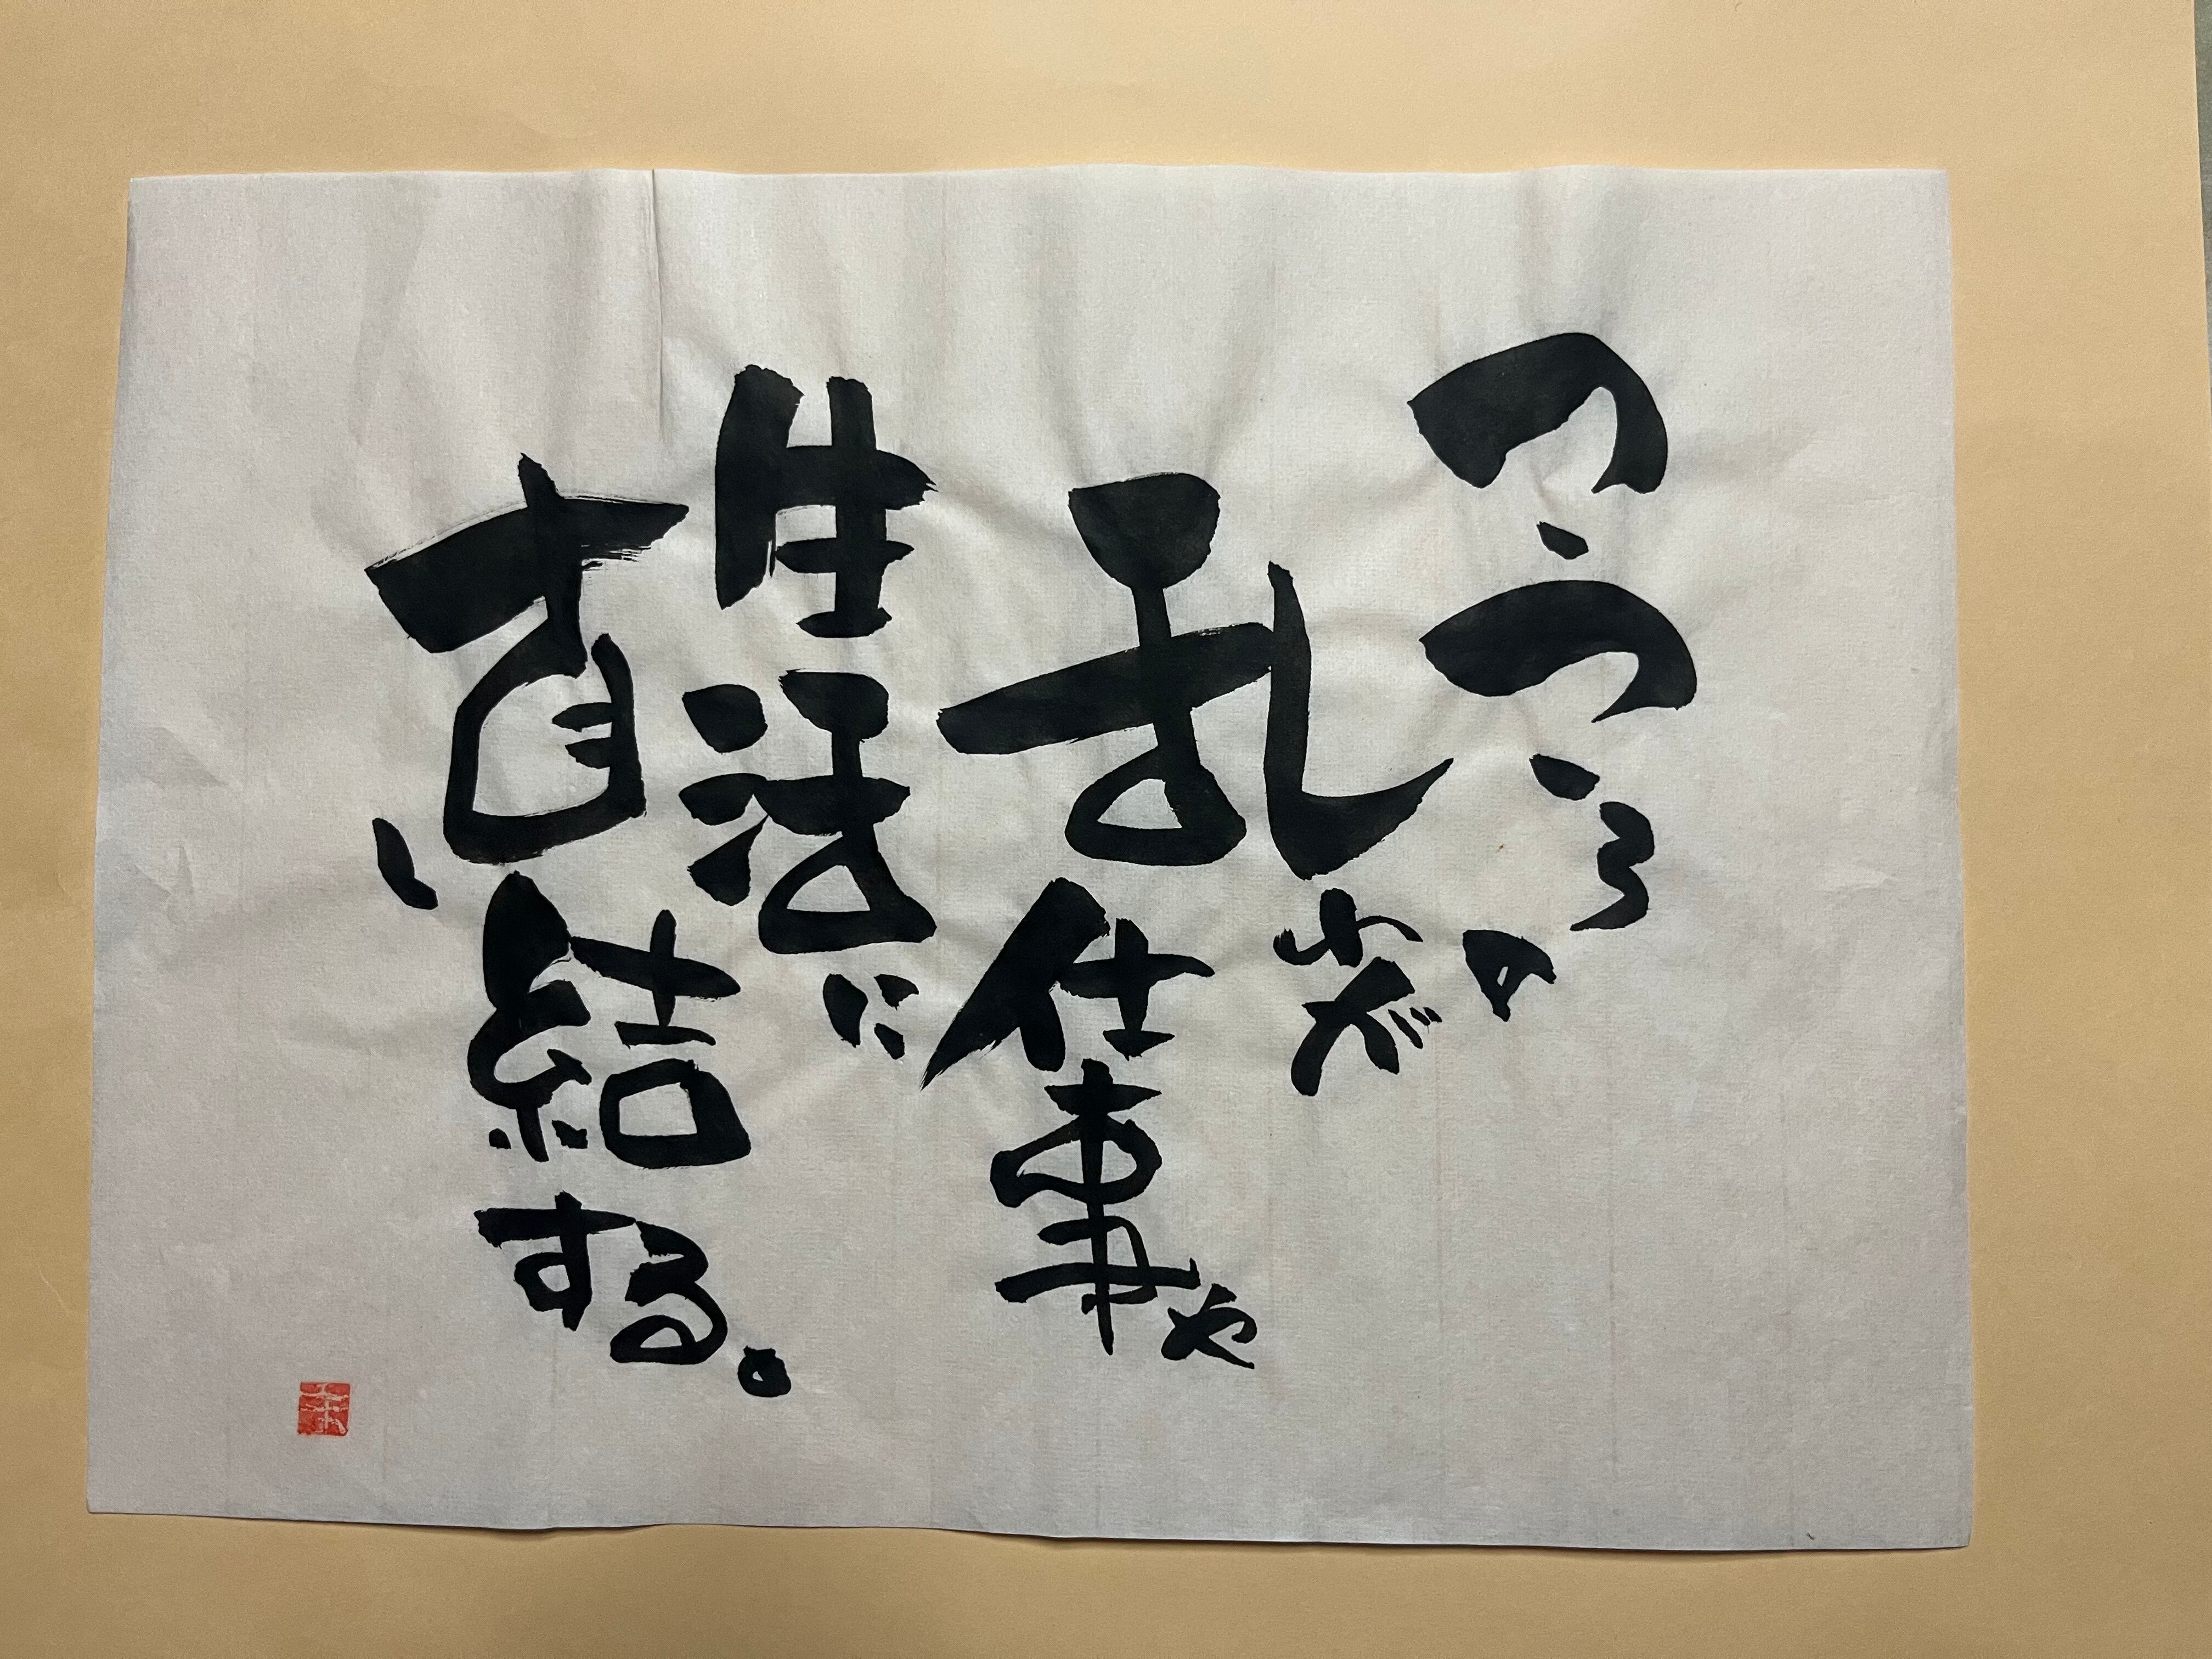 こころの
乱れが
仕事や
生活に
直結する。